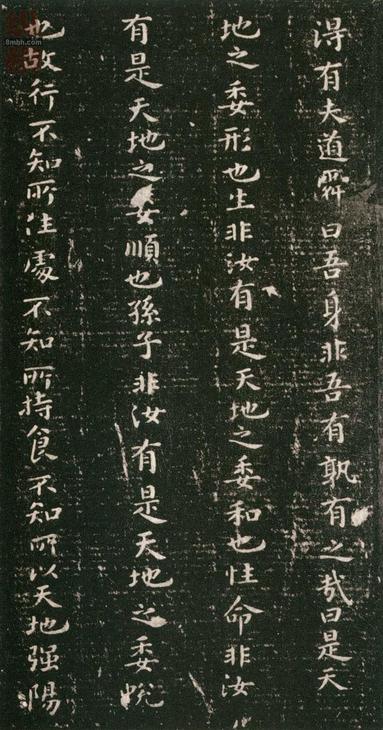 得有夫道舜曰吾身非吾有孰有之哉曰是天
地之委形也生非汝有是天地之委和也性命非汝
有是天地之委順也孫子非汝有是天地之委蛻
也故行不知所往處不知所持食不知所以天地强陽
8mbh.com